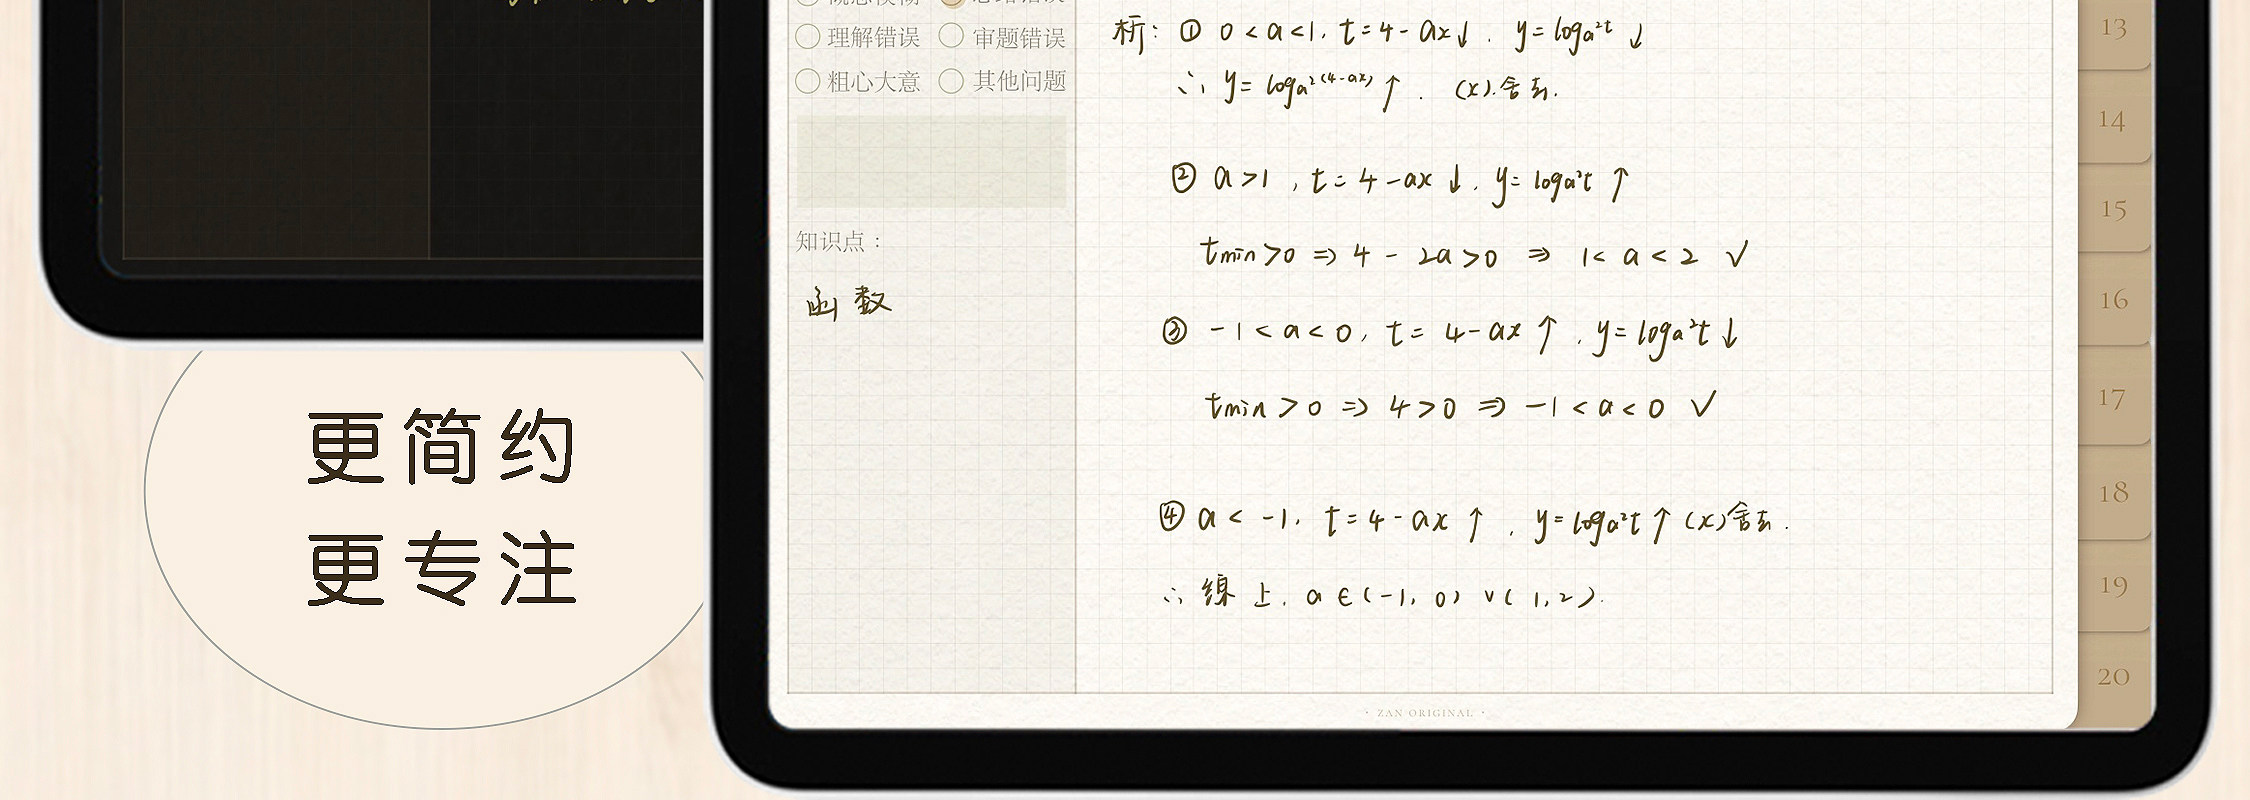 理解错误 审题错误
粗心大意 其他问题
知识点：
函数
析：① 0<a<1, t=4-ax↓. y=loga²t ↓
∴ y=loga²(4-ax)↑. (x).舍去.
② a>1, t=4-ax↓. y=loga²t ↑
tmin>0 ⇒ 4-2a>0 ⇒ 1<a<2 √
③ -1<a<0, t=4-ax↑, y=loga²t↓
tmin>0 ⇒ 4>0 ⇒ -1<a<0 √
④ a<-1, t=4-ax↑, y=loga²t↑(x)舍去.
∴ 综上, a∈(-1,0)∪(1,2).
· ZAN ORIGINAL ·
13
14
15
16
17
18
19
20
更简约
更专注